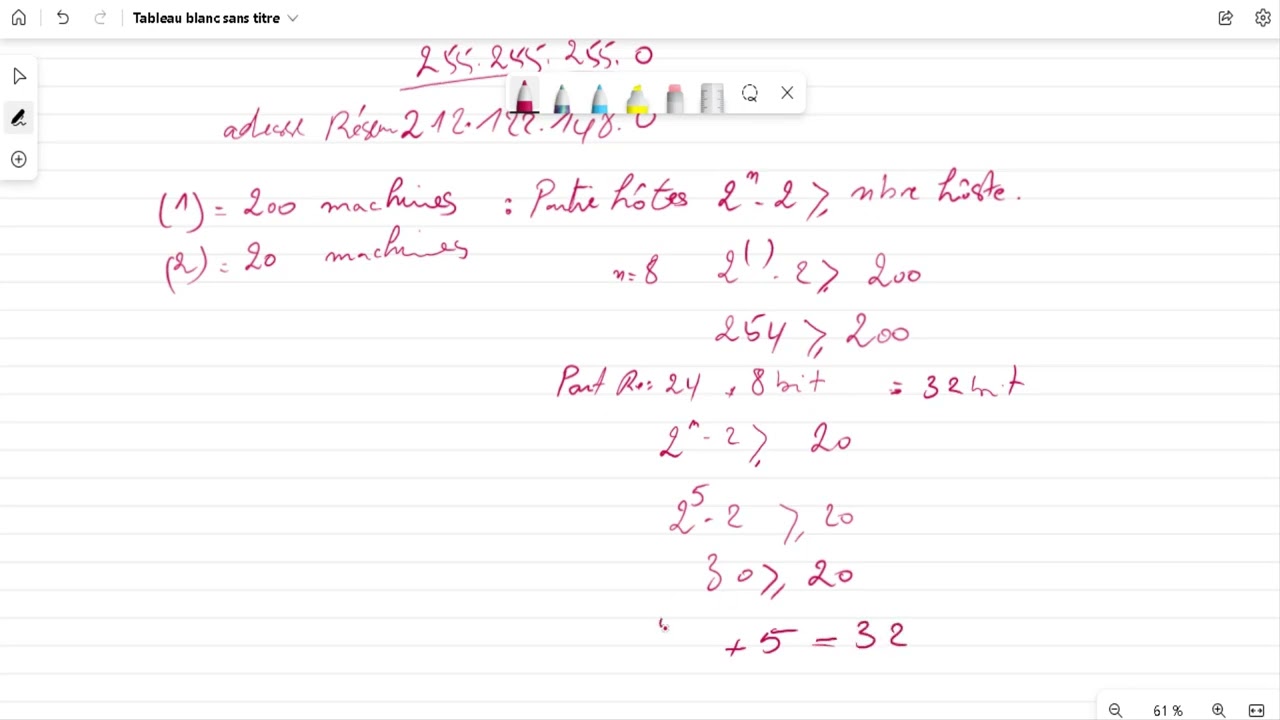 Tableau blanc sans titre
255.255.255.0
adresse Réseau 212.122.148.0
(1) = 200 machines : Partie hôtes 2^n - 2 ≥ nbre hôste.
(2) = 20 machines
n = 8 2^( ) - 2 ≥ 200
254 ≥ 200
Part Re = 24 + 8 bit = 32 bit
2^n - 2 ≥ 20
2^5 - 2 ≥ 20
30 ≥ 20
+ 5 = 32
61 %